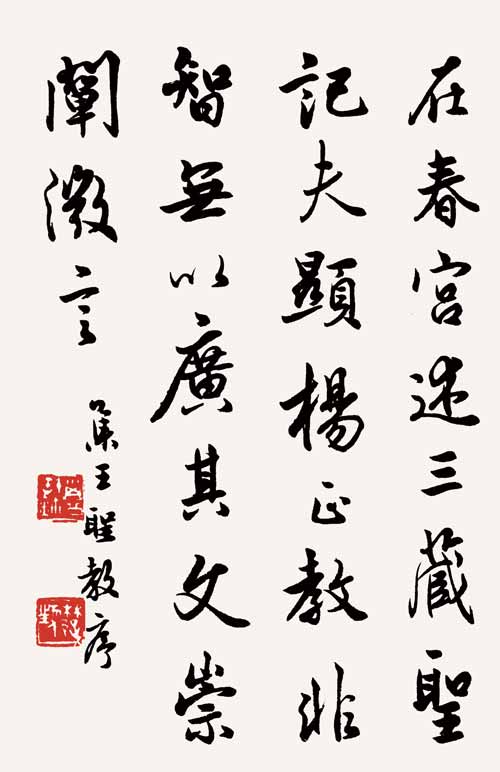 在春宮述三藏聖
記夫顯楊正教非
智無以廣其文崇
闡微言
集王聖教序